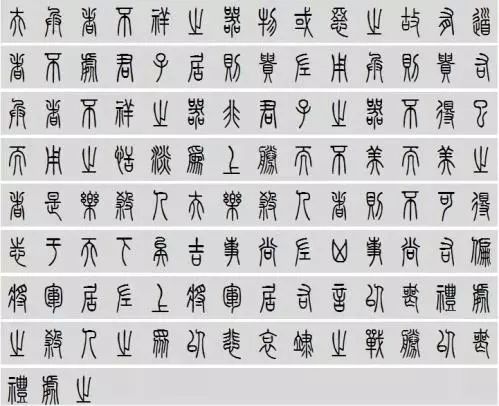 夫兵者不祥之器物或惡之故有道
者不處君子居則貴左用兵則貴右
兵者不祥之器非君子之器不得已
而用之恬淡為上勝而不美而美之
者是樂殺人夫樂殺人者則不可得
志于天下矣吉事尚左凶事尚右偏
將軍居左上將軍居右言以喪禮處
之殺人之眾以悲哀蒞之戰勝以喪
禮處之